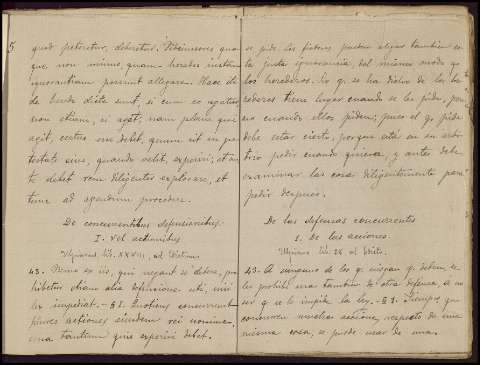 5
quod peteretur, deberetur. Fideiussores quo-
que non minus, quam heredes iustam
ignorantiam possunt allegare. Haec ita
de herede dicta sunt, si cum eo agatur
non etiam, si agat; nam plane qui
agit, certus esse debet, quum sit in po-
testate sua, quando velit, experiri; et an-
te debet rem diligenter explorare, et
tunc ad agendum procedere.
De concurrentibus defensionibus
I. vel actionibus
Ulpianus lib. XXVIII, ad Edictum
43. Nemo ex iis, qui negant se debere, pro-
hibetur etiam alia defensione uti, nisi
lex impediat. - § 1. Quotiens concurrunt
plures actiones eiusdem rei nomine,
una tantum quis experiri debet.
se pide. Los fiadores pueden alegar tambien
la justa ignorancia, del mismo modo q.
los herederos. Lo q. se ha dicho de los he-
rederos tiene lugar cuando se les pide, pero
no cuando ellos piden; pues el q. pide
debe estar cierto, porque está en su arbi-
trio pedir cuando quiera, y antes debe
examinar las cosas diligentemente para
pedir despues.
De las defensas concurrentes
I. De las acciones.
Ulpiano lib. 28 al Edicto.
43. A ninguno de los q. niegan q. deben, se
les prohibe usar tambien de otra defensa, á no
ser q. se lo impida la ley. - § 1. Siempre que
concurren muchas acciones, respecto de una
misma cosa, se puede usar de una.